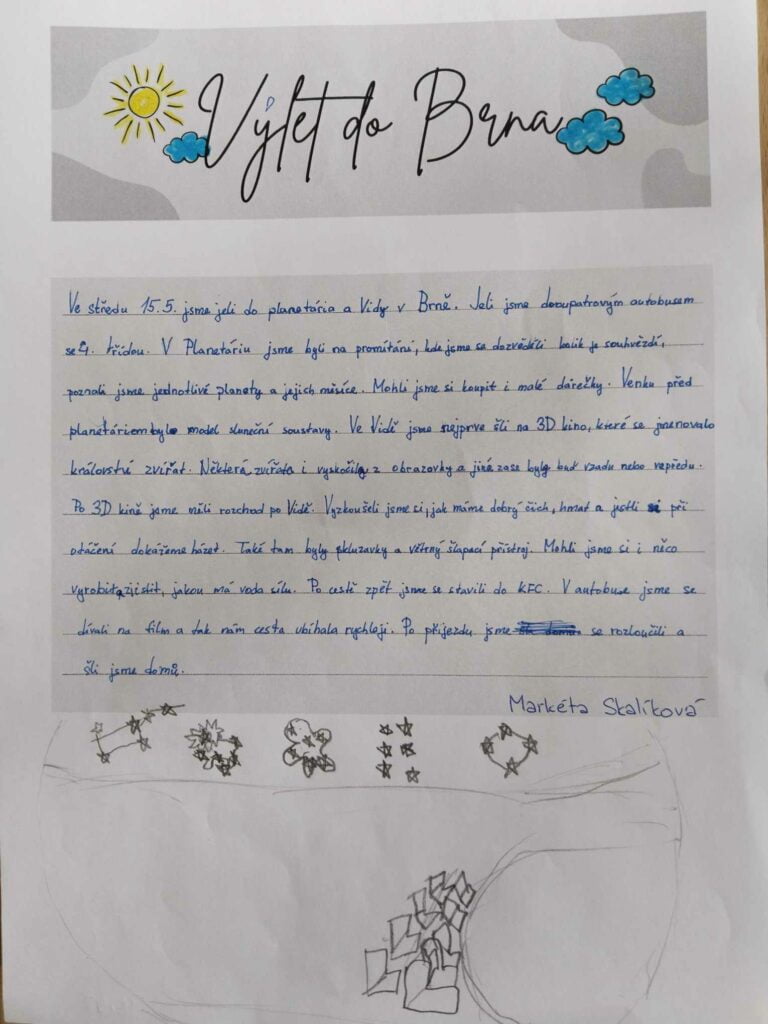 Výlet do Brna
Ve středu 15.5. jsme jeli do planetária a Vidy v Brně. Jeli jsme dvoupatrovým autobusem
se 4. třídou. V Planetáriu jsme byli na promítání, kde jsme se dozvěděli kolik je souhvězdí,
poznali jsme jednotlivé planety a jejich měsíce. Mohli jsme si koupit i malé dárečky. Venku před
planetáriem bylo model sluneční soustavy. Ve Vidě jsme nejprve šli na 3D kino, které se jmenovalo
království zvířat. Některá zvířata i vyskočila z obrazovky a jiné zase byly buď vzadu nebo vepředu.
Po 3D kině jsme měli rozchod po Vidě. Vyzkoušeli jsme si, jak máme dobrý čich, hmat a jestli při
otáčení dokážeme házet. Také tam byly skluzavky a větrný šlapací přístroj. Mohli jsme si i něco
vyrobit a zjistit, jakou má voda sílu. Po cestě zpět jsme se stavili do KFC. V autobuse jsme se
dívali na film a tak nám cesta ubíhala rychleji. Po příjezdu jsme se rozloučili a
šli jsme domů.
Markéta Skalíková